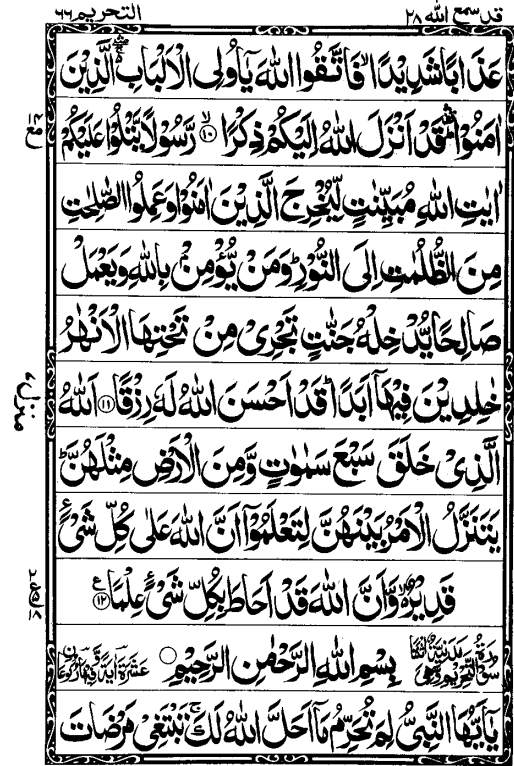 قد سمع الله ٢٨
التحريم ٦٦
عَذَابًا شَدِيْدًا ۙ فَاتَّقُوا اللّٰهَ يٰۤاُولِى الْاَلْبَابِ ۛۚ الَّذِيْنَ
اٰمَنُوْا ۛؕ قَدْ اَنْزَلَ اللّٰهُ اِلَيْكُمْ ذِكْرًا ۙ‏﴿۱۰﴾ رَّسُوْلًا يَّتْلُوْا عَلَيْكُمْ
اٰيٰتِ اللّٰهِ مُبَيِّنٰتٍ لِّيُخْرِجَ الَّذِيْنَ اٰمَنُوْا وَعَمِلُوا الصّٰلِحٰتِ
مِنَ الظُّلُمٰتِ اِلَى النُّوْرِ ؕ وَمَنْ يُّؤْمِنْۢ بِاللّٰهِ وَيَعْمَلْ
صَالِحًا يُّدْخِلْهُ جَنّٰتٍ تَجْرِىْ مِنْ تَحْتِهَا الْاَنْهٰرُ
خٰلِدِيْنَ فِيْهَاۤ اَبَدًا ؕ قَدْ اَحْسَنَ اللّٰهُ لَهٗ رِزْقًا ﴿۱۱﴾ اَللّٰهُ
الَّذِىْ خَلَقَ سَبْعَ سَمٰوٰتٍ وَّمِنَ الْاَرْضِ مِثْلَهُنَّ ؕ
يَتَنَزَّلُ الْاَمْرُ بَيْنَهُنَّ لِتَعْلَمُوْۤا اَنَّ اللّٰهَ عَلٰى كُلِّ شَىْءٍ
قَدِيْرٌ ۙ وَّاَنَّ اللّٰهَ قَدْ اَحَاطَ بِكُلِّ شَىْءٍ عِلْمًا ﴿۱۲﴾ ع
بِسْمِ اللّٰهِ الرَّحْمٰنِ الرَّحِيْمِ
يٰۤاَيُّهَا النَّبِىُّ لِمَ تُحَرِّمُ مَاۤ اَحَلَّ اللّٰهُ لَكَ ۚ تَبْتَغِىْ مَرْضَاتَ
منزل ٧